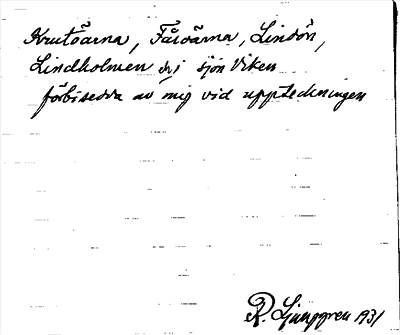 Krutöarna, Fåröarna, Lindön,
Lindholmen i sjön Viken
förbisedda av mig vid uppteckningen
R. Ljunggren 1931